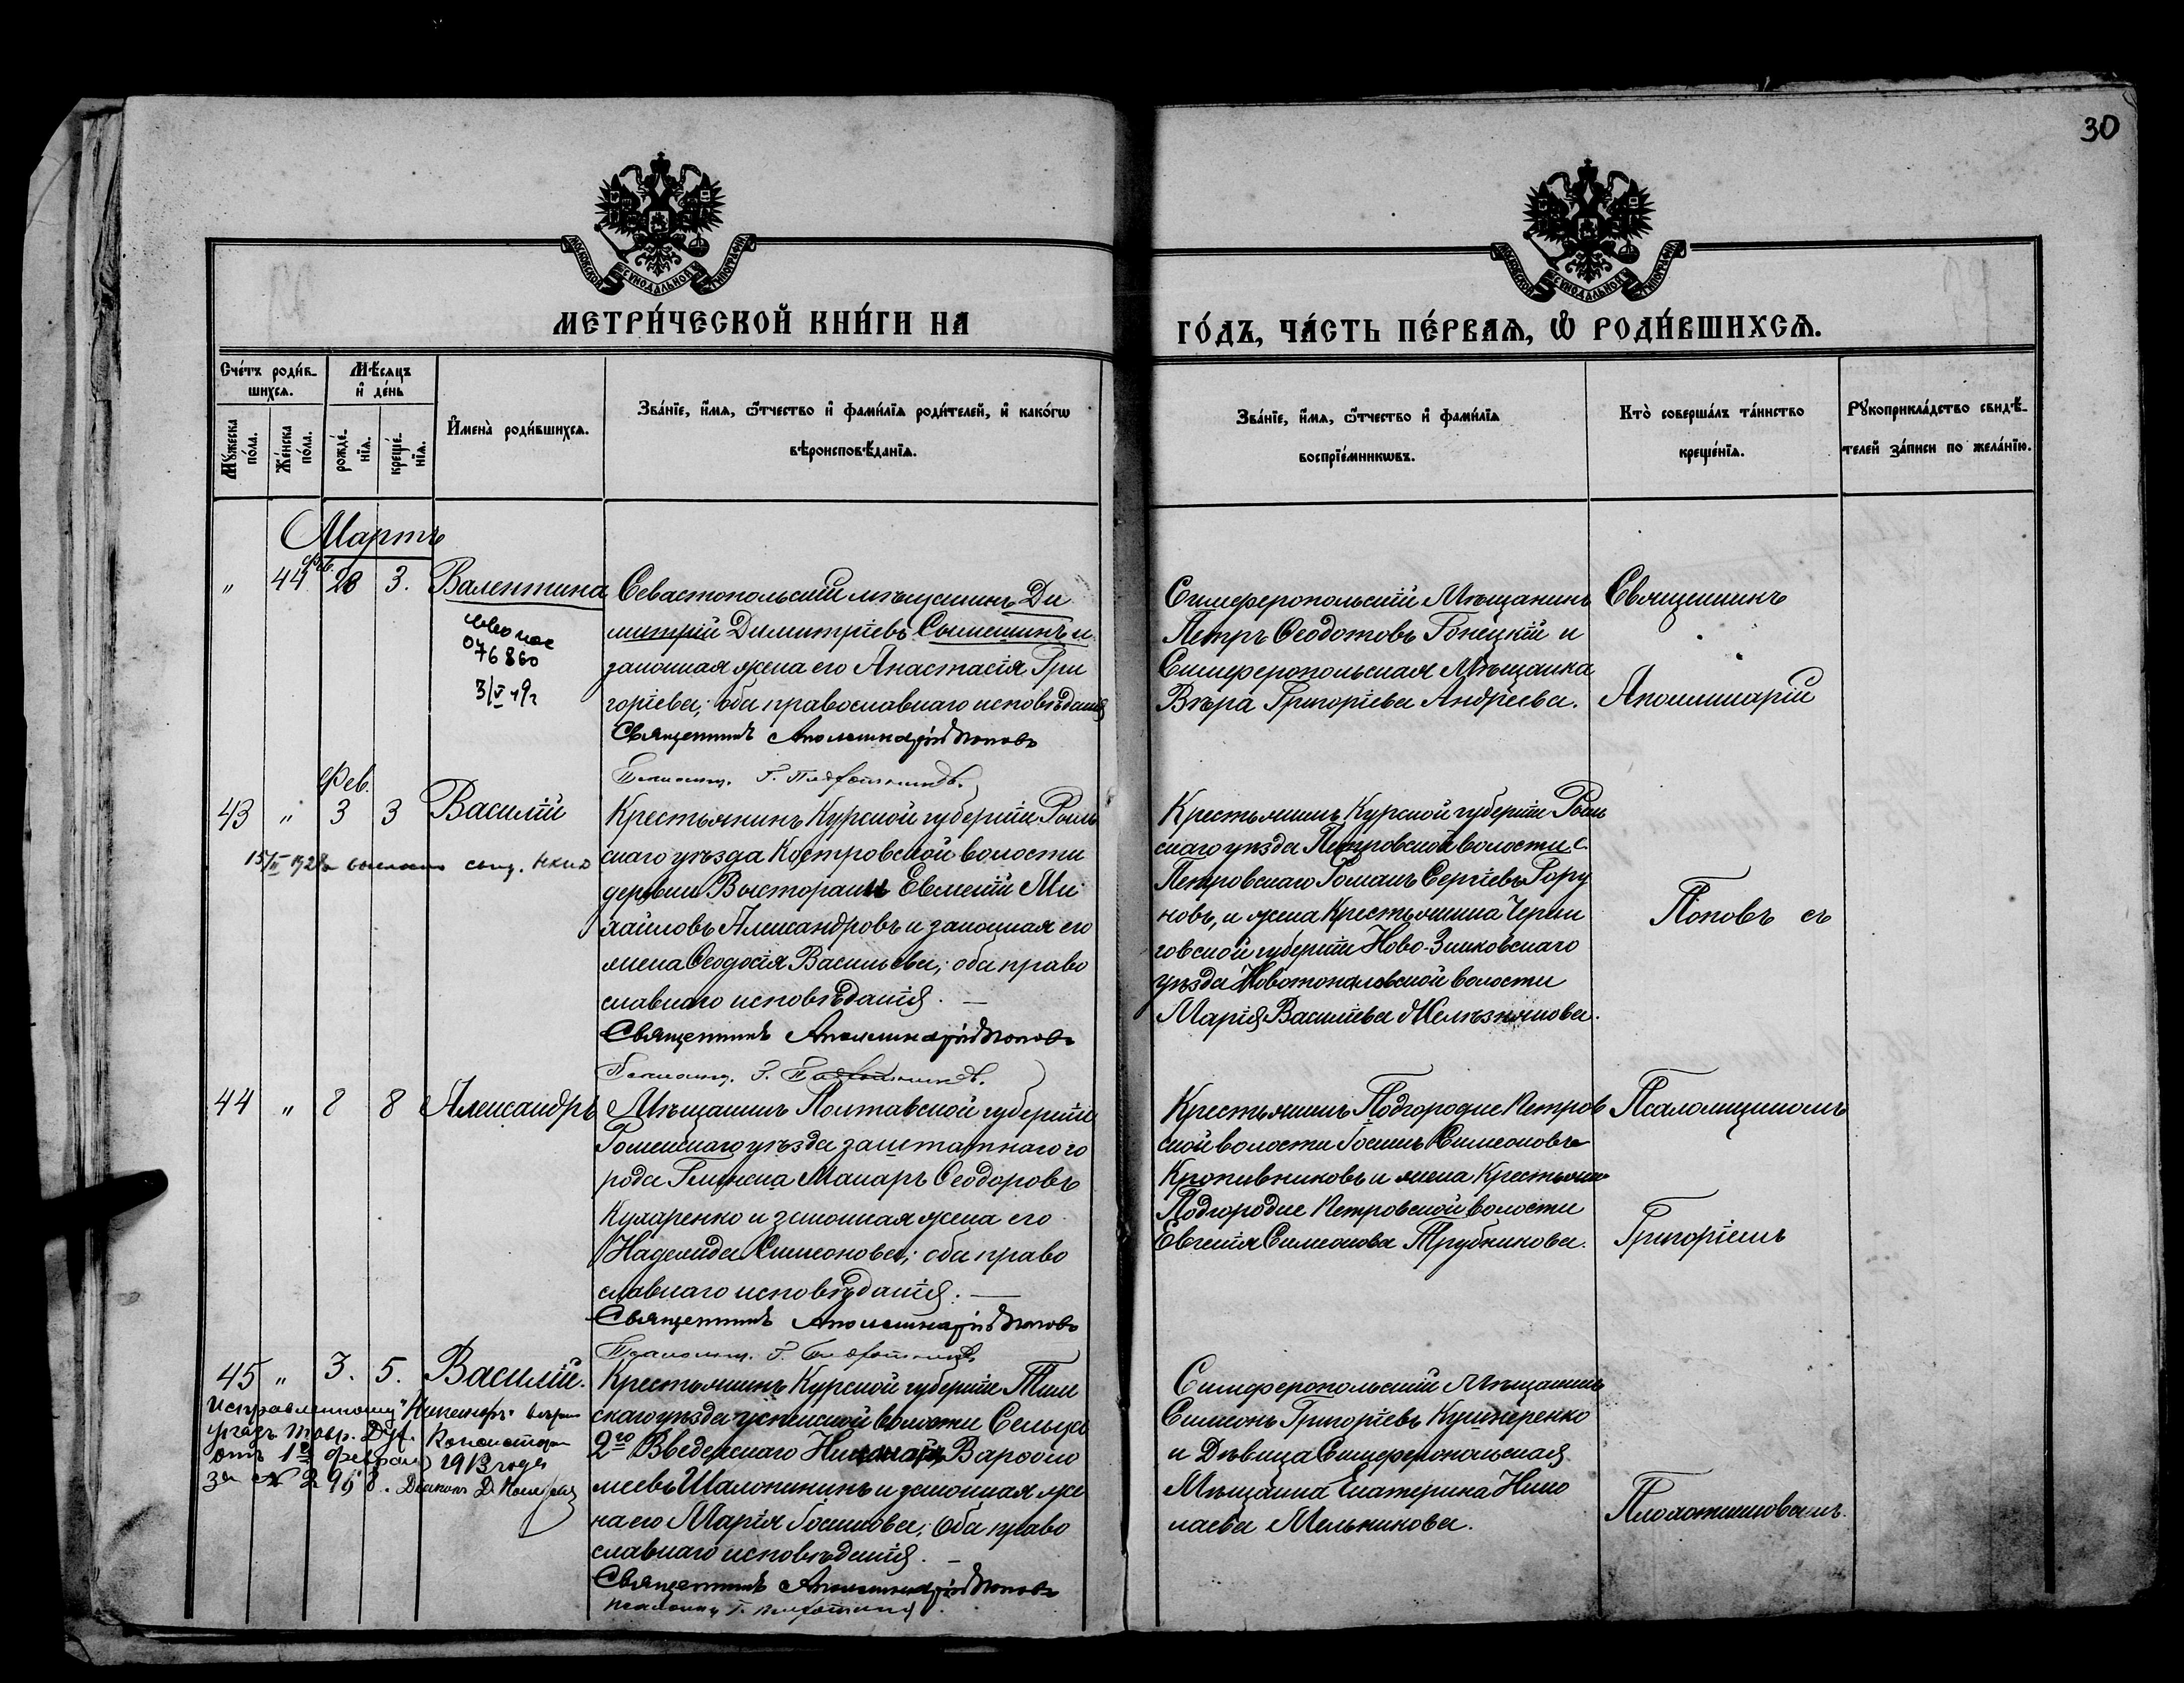 30
МОСКОВСКОЙ СУНОДАЛЬНОЙ ТИПОГРАФІИ
МОСКОВСКОЙ СУНОДАЛЬНОЙ ТИПОГРАФІИ
МЕТРИ́ЧЕСКОЙ КНИ́ГИ НА
ГО́ДЪ, ЧА́СТЬ ПЕ́РВАѦ, Ѡ҆ РОДИ́ВШИХСѦ.
Сче́тъ роди́в-
шихсѧ.
Мѣ́сѧцъ
и҆ де́нь
Мꙋ́жеска
по́ла.
Же́нска
по́ла.
рожде́-
нїѧ.
креще́-
нїѧ.
И҆мена̀ роди́вшихсѧ.
Зва́нїе, и҆́мѧ, ѻ҆́тчество и҆ фамилїѧ роди́телей, и҆ како́гѡ
вѣроисповѣ́данїѧ.
Зва́нїе, и҆́мѧ, ѻ҆́тчество и҆ фами́лїѧ
воспрїе́мникѡвъ.
Кто̀ соверша́лъ та́инство
креще́нїѧ.
Рꙋкоприкла́дство свидѣ́-
телей за́писи по жела́нїю.
Мартъ
" 44 Фев. 28 3. Валентина
076860
3/V 19г
Севастопольскій мѣщанинъ Ди
митрій Димитріевъ и
законная жена его Анастасія Гри
горіева; оба православнаго исповѣданія
Священникъ Аполлинарій Поповъ
Псаломщ. Г.
Симферопольскій Мѣщанинъ
Петръ Ѳеодотовъ Гонецкій и
Симферопольская Мѣщанка
Вѣра Григоріева Андреева.
Священникъ
Аполлинарій
43 " Фев. 3 3 Василій
15/II 1928г свид.
Крестьянинъ Курской губерніи Рыль
скаго уѣзда Костровской волости
деревни Евменій Ми
хаиловъ Александровъ и законная его
жена Ѳеодосія Васильева; оба право
славнаго исповѣданія. —
Священникъ Аполлинарій Поповъ
Псаломщ. Г.
Крестьянинъ Курской губерніи Рыль
скаго уѣзда Петровской волости с.
Петровскаго Романъ Сергіевъ Гору
новъ, и жена Крестьянина Черни
говской губерніи Ново-Зыбковскаго
уѣзда волости
Марія Василіева
Поповъ съ
44 " 2 8 Александръ
Мѣщанинъ Полтавской губерніи
Роменскаго уѣзда заштатнаго го
рода Глинска Макаръ Ѳеодоровъ
Кухаренко и законная жена его
Надежда Симеонова; оба право
славнаго исповѣданія. —
Священникъ Аполлинарій Поповъ
Псаломщ. Г.
Крестьянинъ Подгородне Петров
ской волости Симеоновъ
Кропивниковъ и жена Крестьянина
Подгородне Петровской волости
Евгенія Симеонова Трубникова.
Псаломщикомъ
Григоріемъ
45 " 3. 5. Василій.
Исправленному
указъ Тавр. Дух. Консисторіи
отъ 1го февраля 1913 года
за № 2968. Діаконъ Д.
Крестьянинъ Курской губерніи Тим
скаго уѣзда успенской волости Сельца
2го Введенскаго Варѳоло
меевъ Шалопининъ и законная же
на его Марія оба право
славнаго исповѣданія. —
Священникъ Аполлинарій Поповъ
Псаломщ. Г.
Симферопольскій Мѣщанинъ
Симеонъ Григоріевъ Кушнеренко
и Дѣвица Симферопольская
Мѣщанка Екатерина Нико
лаева Мельникова.